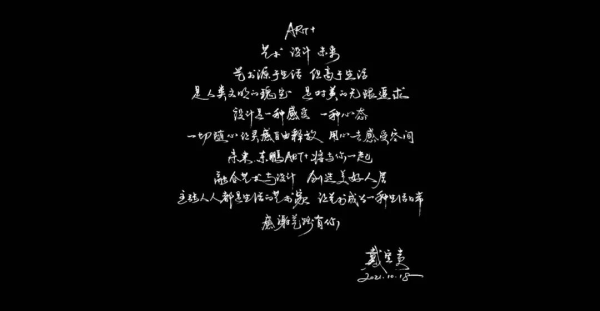 ART+
艺术 设计 未来
艺术源于生活 但高于生活
是人类文明的瑰宝 是对美的无限追求
设计是一种感受 一种心态
一切随心 让灵感自由释放 用心去感受空间
未来 东鹏ART+将与你一起
融合艺术与设计 创造美好人居
主张人人都是生活的艺术家 让艺术成为一种生活日常
感谢艺路有你
戴宝贵
2021.10.18